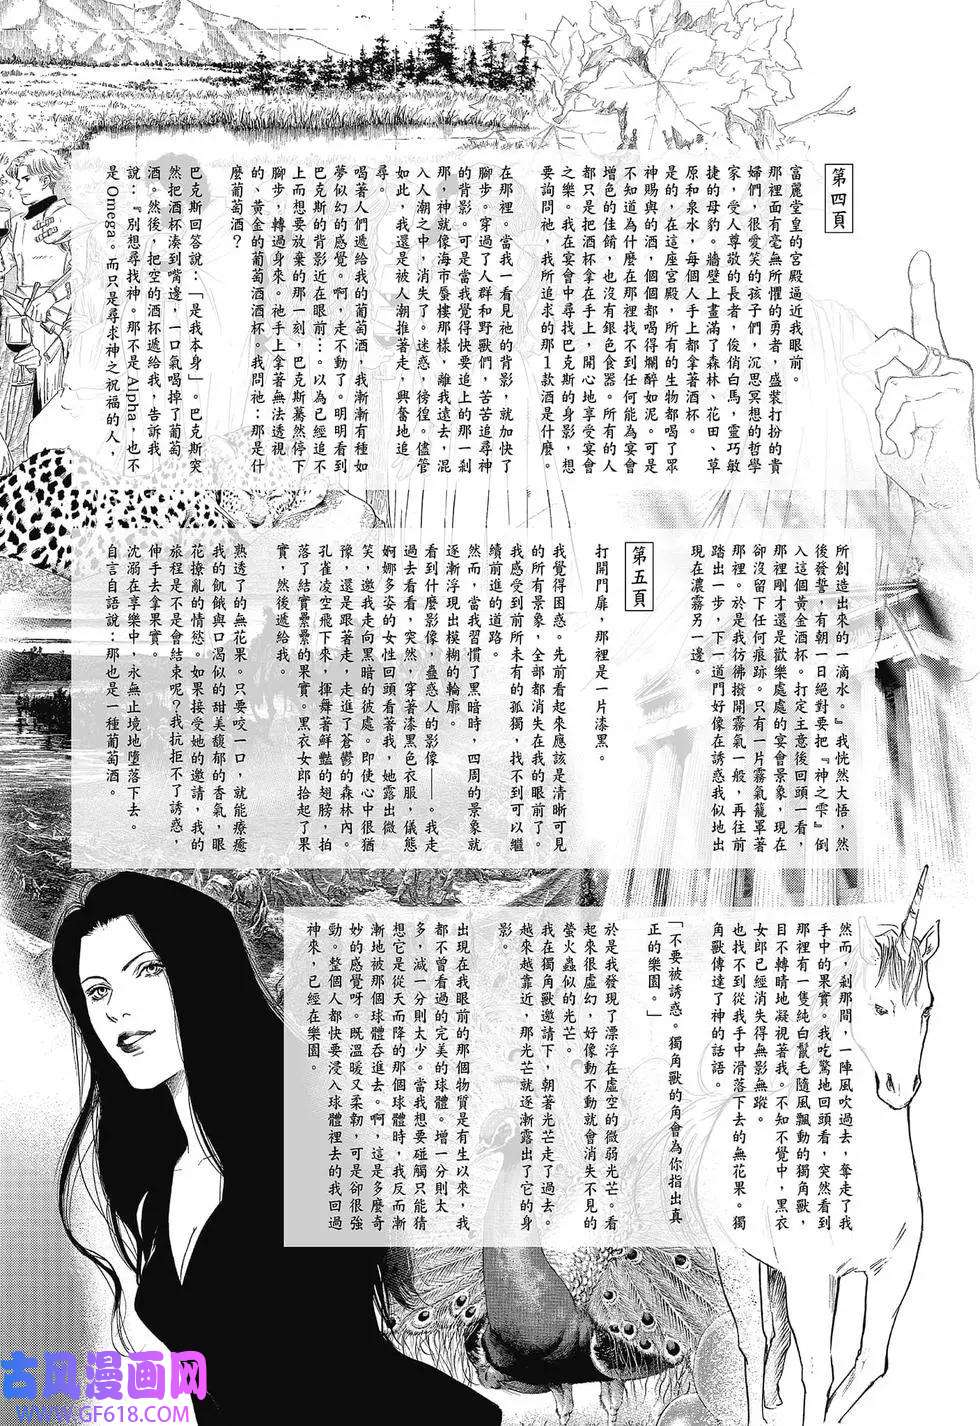 第四頁
富麗堂皇的宮殿逼近我眼前。
那裡面有毫無所懼的勇者，盛裝打扮的貴
婦們，很愛笑的孩子們，沉思冥想的哲學
家，受人尊敬的長者，俊俏白馬，靈巧敏
捷的母豹。牆壁上畫滿了森林、花田、草
原和泉水，每個人手上都拿著酒杯。
是的，在這座宮殿，所有的生物都喝了眾
神賜與的酒，個個都喝得爛醉如泥。可是
不知道為什麼在那裡找不到任何能為宴會
增色的佳餚，也沒有銀色食器。所有的人
都只是把酒杯拿在手上，開心地享受宴會
之樂。我在宴會中尋找巴克斯的身影，想
要詢問祂，我所追求的那1款酒是什麼。
在那裡。當我一看見祂的背影，就加快了
腳步。穿過了人群和野獸們，苦苦追尋神
的背影。可是當我覺得快要追上的那一剎
那，神就像海市蜃樓那樣，離我遠去，混
入人潮之中，消失了。迷惑，徬徨。儘管
如此，我還是被人潮推著走，興奮地追
尋。
喝著人們遞給我的葡萄酒，我漸漸有種如
夢似幻的感覺。啊，走不動了。明明看到
巴克斯的背影近在眼前…。以為已經追不
上而想要放棄的那一刻，巴克斯驀然停下
腳步，轉過身來。祂手上拿著無法透視
的、黃金的葡萄酒酒杯。我問祂：那是什
麼葡萄酒？
巴克斯回答說：「是我本身」。巴克斯突
然把酒杯湊到嘴邊，一口氣喝掉了葡萄
酒。然後，把空的酒杯遞給我，告訴我
說：『別想尋找神。那不是 Alpha，也不
是 Omega。而只是尋求神之祝福的人，
所創造出來的一滴水。』我恍然大悟，然
後發誓，有朝一日絕對要把『神之雫』倒
入這個黃金酒杯。打定主意後回頭一看，
那裡剛才還是歡樂處處的宴會景象，現在
卻沒留下任何痕跡。只有一片霧氣籠罩著
那裡。於是我彷彿撥開霧氣一般，再往前
踏出一步，下一道門好像在誘惑我似地出
現在濃霧另一邊。
第五頁
打開門扉，那裡是一片漆黑。
我覺得困惑。先前看起來應該是清晰可見
的所有景象，全部都消失在我的眼前了。
我感受到前所未有的孤獨，找不到可以繼
續前進的道路。
然而，當我習慣了黑暗時，四周的景象就
逐漸浮現出模糊的輪廓。
看到什麼影像，蠱惑人的影像——。我走
過去看看，突然，穿著漆黑色衣服，儀態
婀娜多姿的女性回頭看著我，她露出微
笑，邀我走向黑暗的彼處。即使心中很猶
豫，還是跟著走，走進了蒼鬱的森林內。
孔雀凌空飛下來，揮舞著鮮豔的翅膀，拍
落了結實纍纍的果實。黑衣女郎拾起了果
實，然後遞給我。
熟透了的無花果。只要咬一口，就能療癒
我的飢餓與口渴似的甜美馥郁的香氣，眼
花撩亂的情慾。如果接受她的邀請，我的
旅程是不是會結束呢？我抗拒不了誘惑，
伸手去拿果實。
沈溺在享樂中，永無止境地墮落下去。
自言自語說：那也是一種葡萄酒。
然而，剎那間，一陣風吹過去，奪走了我
手中的果實。我吃驚地回頭看，突然看到
那裡有一隻純白鬣毛隨風飄動的獨角獸，
目不轉睛地凝視著我。不知不覺中，黑衣
女郎已經消失得無影無蹤。
也找不到從我手中滑落下去的無花果。獨
角獸傳達了神的話語。
「不要被誘惑。獨角獸的角會為你指出真
正的樂園。」
於是我發現了漂浮在虛空的微弱光芒。看
起來很虛幻，好像動不動就會消失不見的
螢火蟲似的光芒。
我在獨角獸邀請下，朝著光芒走了過去。
越來越靠近，那光芒就逐漸露出了它的身
影。
出現在我眼前的那個物質是有生以來，我
都不曾看過的完美的球體。增一分則太
多，減一分則太少。當我想要碰觸只能猜
想它是從天而降的那個球體時，我反而漸
漸地被那個球體吞進去。啊，這是多麼奇
妙的感覺呀。既溫暖又柔韌，可是卻很強
勁。整個人都快要浸入球體裡去的我回過
神來，已經在樂園。
古风漫画网
WWW.GF618.COM